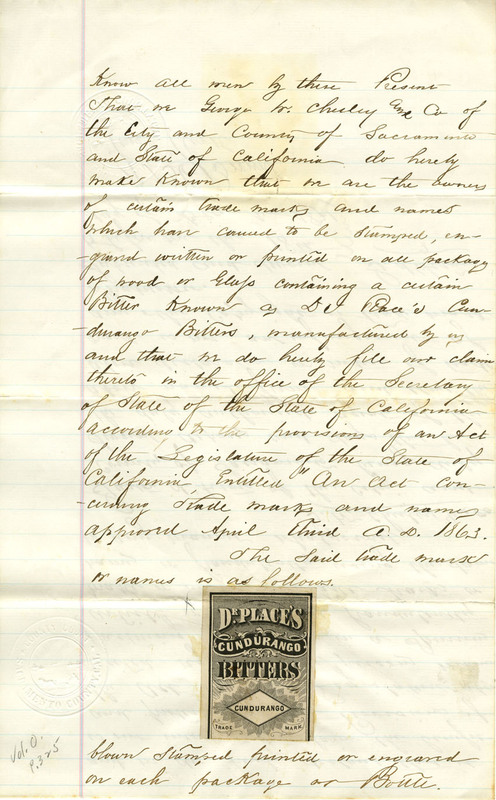 Know all men by these Present
That we George W. Chesley and Co of
the City and County of Sacramento
and State of California do hereby
make Known that we are the owners
of certain trade marks and names
which have caused to be stamped, en-
-graved written or printed on all package
of wood or Glass containing a certain
Bitter Known as Dr Place's Cun-
durango Bitters, manufactured by us
and that we do hereby file our claim
thereto in the office of the Secretary
of State of the State of California
according to the provisions of an Act
of the Legislature of the State of
California Entitled "An Act con-
cerning Trade marks and names
approved April third A.D. 1863.
The said trade mark
or names is as follows.
DR. PLACE'S
CUNDURANGO
BITTERS
CUNDURANGO
TRADE MARK
blown stamped printed or engraved
on each package or Bottle.
Vol. 0.
P. 325